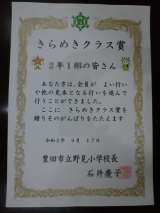 きらめきクラス賞
2年1組の皆さん
あなた方は、全員が よい行い
や他の見本となる行いを進んで
行うことができました。
ここに きらめきクラス賞を
贈りそのがんばりをたたえます
令和
豊田市立野見小学校長
石井慶子